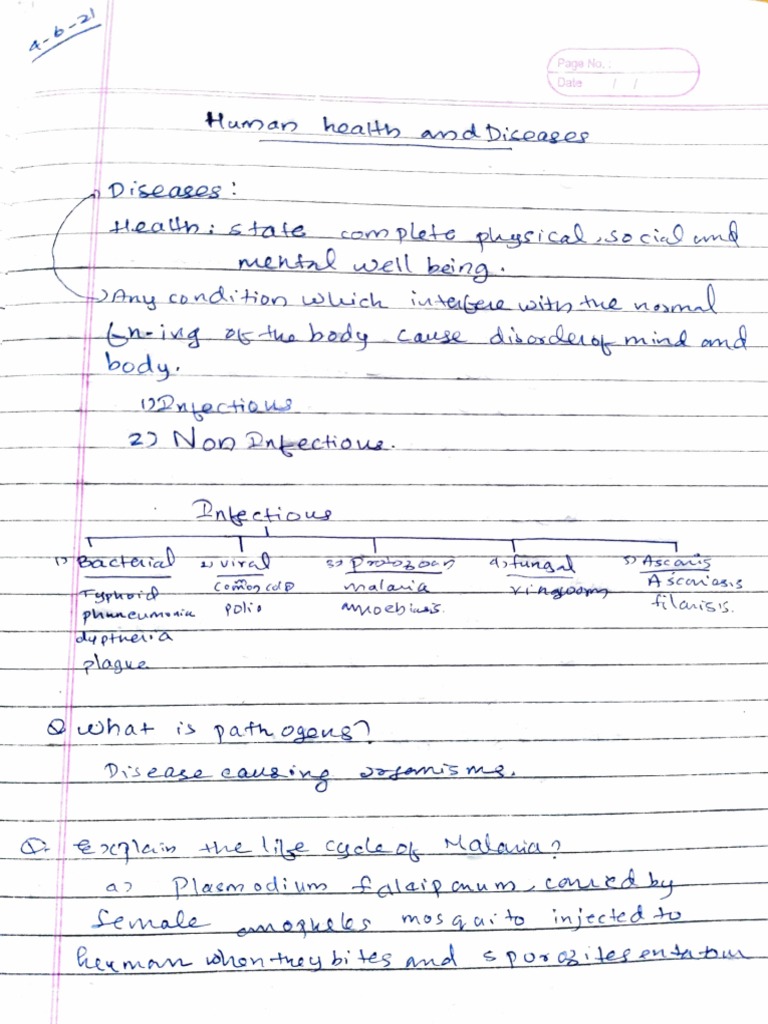 4-6-21
Page No. :
Date / /
Human health and Diseases
Diseases :
Health : state complete physical, social and
mental well being.
Any condition which interfere with the normal
fn-ing of the body cause disorder of mind and
body.
1) Infectious
2) Non Infectious.
Infectious
1) Bacterial 2) viral 3) Protozoan 4) fungal 5) Ascaris
Typhoid common cold malaria ringworm Ascariasis
phneumonia polio amoebiasis. filarisis.
dyptheria
plague
Q What is pathogens?
Disease causing organisms.
Q. Explain the life cycle of Malaria?
a) Plasmodium falciparum, carried by
female mosquito injected to
human when they bites and